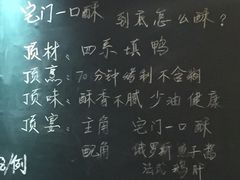 宅门一口酥 到底怎么酥？
顶材：四系填鸭
顶烹：70分钟烤制不含糊
顶味：酥香不腻 少油健康
顶宴：主角 宅门一口酥
配角 俄罗斯鱼子酱
法式鹅肝
例